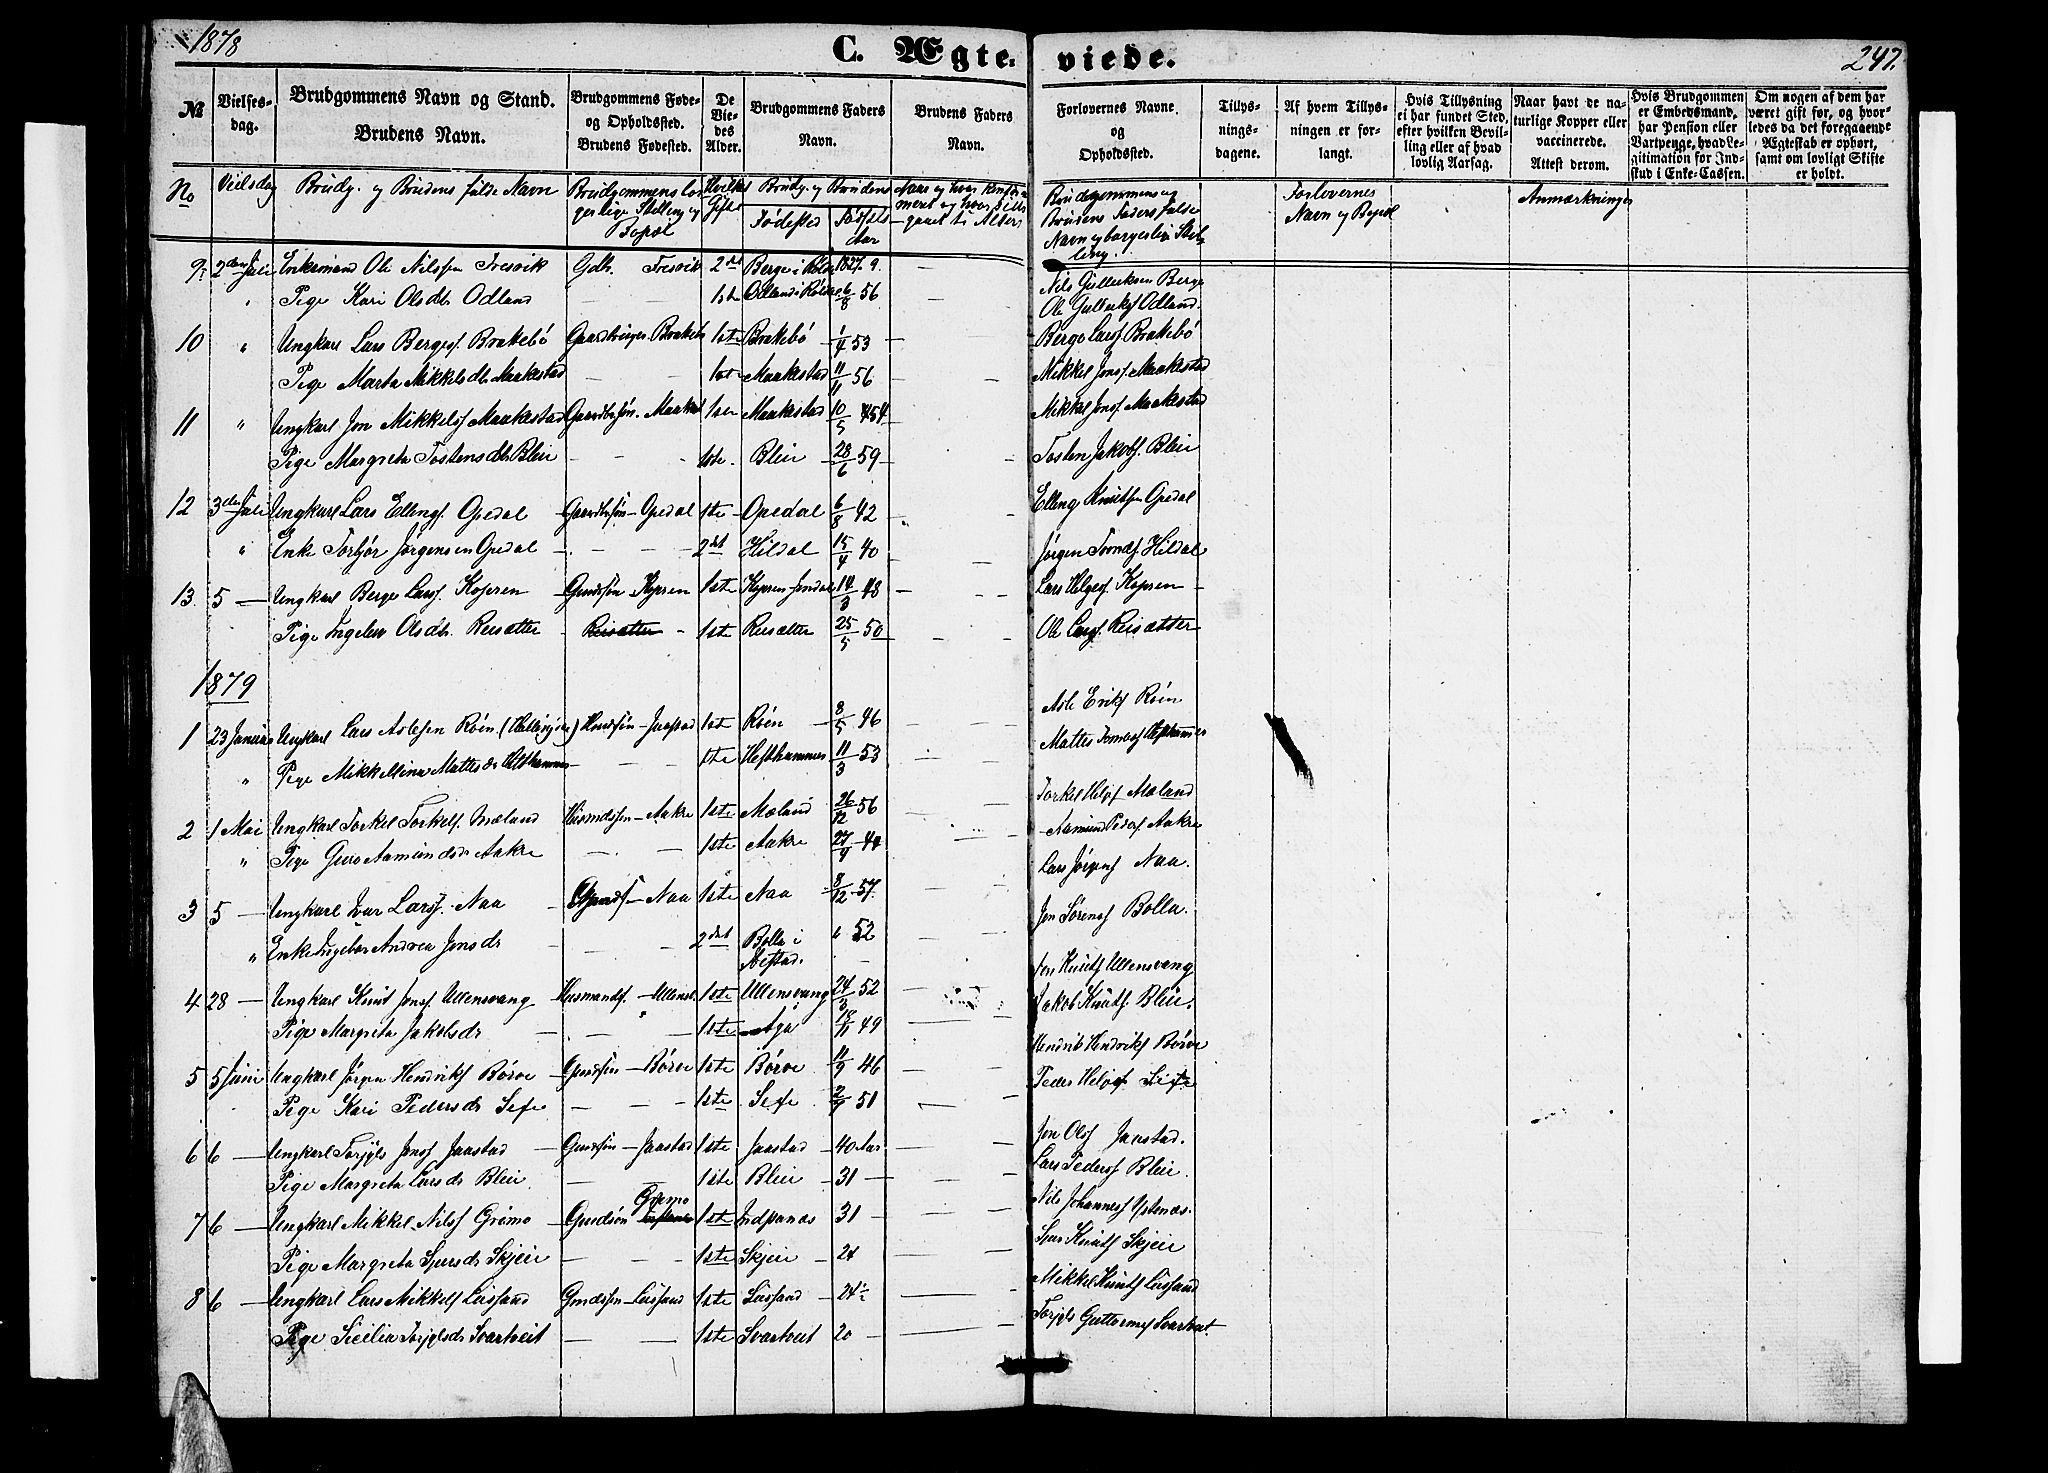 1878
C. Ægteviede.
247.
№
Vielsesdag.
Brudgommens Navn og Stand.
Brudens Navn.
Brudgommens Føde- og Opholdssted.
Brudens Fødested.
De Viedes Alder.
Brudgommens Faders Navn.
Brudens Faders Navn.
Forlovernes Navne. og Opholdssted.
Tillysningsdagene.
Af hvem Tillysningen er forlangt.
Hvis Tillysning ei har fundet Sted, efter hvilken Bevilling eller af hvad lovlig Aarsag.
Naar havt de naturlige Kopper eller vaccinerede.
Attest derom.
Hvis Brudgommen er Embedsmand, har Pension eller Vartpenge, hvad Legitimation for Indstud i Enke-Cassen.
Om nogen af dem har været gift før, og hvorledes da det foregaaende Ægteskab er ophørt, samt om lovligt Skifte er holdt.
No Vielsdag Brudg. og Brudens fulde Navn Brudgommens borgerlige Stilling og Bopæl Hvilket Gifte Brudg. og Brudens Fødested Fødsels Aar
Brudgommens og Brudens Faders fulde Navn og borgerlige Stilling.
Forlovernes Navn og Bopæl
Anmærkninger
9. 2den Juli Enkemand Ole Nilssen Tresvik Gdb. Tresvik 2det Berge i Røldal 1827. 9. Nils Gulleiksen Berge
" Pige Kari Olsdtr Odland 1ste Odland i Røldal 6/8 56 Ole Gulleiks. Odland.
10 " Ungkarl Lars Berges. Brattebø Gaardbruger. Brattebø 1ste Brattebø 1/4 53 Berge Larss. Brattebø
Pige Marta Mikkelsdtr Maakestad 1ste Maakestad 11/11 56 Mikkel Jons. Maakestad
11 " Ungkarl Jon Mikkels. Maakestad Gaardbrsøn. Maakest 1ste Maakestad 10/5 54 Mikkel Jons. Maakestad
Pige Margreta Tostensdtr Bleie 1ste. Bleie 28/6 59 Tosten Jakobs. Bleie
12 3den Juli Ungkarl Lars Ellings. Opedal Gaardbrsøn - Opedal 1ste Opedal 6/8 42 Elling Knutsen Opedal
" Enke Torbjør Jørgensen Opedal 2det Hildal 15/4 40 Jørgen Hildal
13. 5 — Ungkarl Berge Larss. Kopren Gmdsøn - Kopren 1ste Kopren Jondal 14/3 48 Lars Helges. Kopren
Pige Ingeleiv Olsdtr. Reisæter Reisæter 1ste Reisæter 25/5 50 Ole Larss. Reisæter
1879
1 23 Januar Ungkarl Lars Aslesen Røen (Hallingdal) Hmdsøn - Jaastad 1ste Røen 8/5 46 Asle Eriks. Røen
" Pige Mikkelina Mattesdr Hesthammer 1ste Hesthammer 11/3 53 Mattes Hesthammer
2 1 Mai Ungkarl Torkel Torkels. Mæland Husmdssøn - Aakre 1ste Mæland 26/12 56 Torkel Helges. Mæland
" Pige Guro Aamundsdr Aakre 1ste Aakre 27/9 44 Aamund Peders. Aakre
3 5 — Ungkarl Ivar Larss. Naa Gmds. - Naa 1ste Naa 8/12 57. Lars Jørgens. Naa.
" Enke Ingebor Andrea Jonsdr 2det Bolla i 52 Jon Sørens. Bolla.
4 28 — Ungkarl Knut Jons. Ullensvang Husmands. - Ullensv. 1ste Ullensvang 24/3 52 Jon Knuts. Ullensvang
Pige Margreta Jakobsdr 1ste Aga 18/11 49 Jakob Knuts. Bleie.
5 5 Juni Ungkarl Jørgen Hendriks. Børve Gmdsøn - Børve 1ste Børve 11/9 46 Hendrik Hendriks. Børve
Pige Kari Pedersdr Sexe 1ste Sexe 2/9 51 Peder Helges. Sexe
6 6 — Ungkarl Torjyls Jons. Jaastad Gmdsøn - Jaastad 1ste Jaastad 40 Aar Jon Ols. Jaastad.
Pige Margreta Larsdr Bleie 1ste Bleie 31 Lars Peders. Bleie.
7 6 — Ungkarl Mikkel Nils. Grimo Gmdsøn Grimo 1ste Indstenæs 31 Nils Johannes.
Pige Margreta Sjursdr Skjeie 1ste Skjeie 24 Sjur Knuts. Skjeie
8 6 — Ungkarl Lars Mikkels. Lussand Gmdssøn - Lussand 1ste Lussand 24½ Mikkel Knuts. Lussand
Pige Sicilia Torjylsdr Svartveit 1ste Svartveit 20 Torjyls Guttorms. Svartveit.